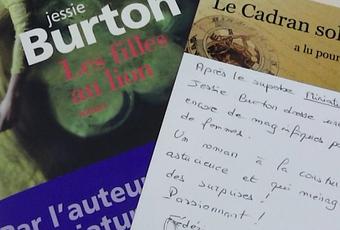 jessie
Burton
Les filles
au lion
roman
Par l'auteur
Le Cadran sol
a lu pour
Après le superbe Miniatu
Jessie Burton dresse
encore de magnifiques po
de femmes.
Un roman à la constru
astucieuse et qui ménag
des surprises !
Passionnant !
Frédéri